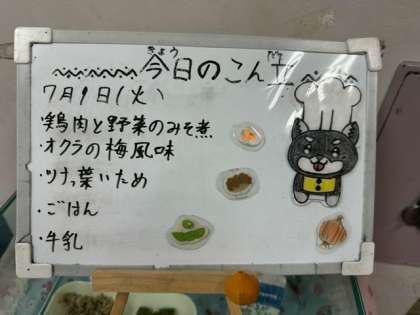 きょう だて
今日のこん立
7月9日(火)
・鶏肉と野菜のみそ煮
・オクラの梅風味
・ツナっ葉いため
・ごはん
・牛乳